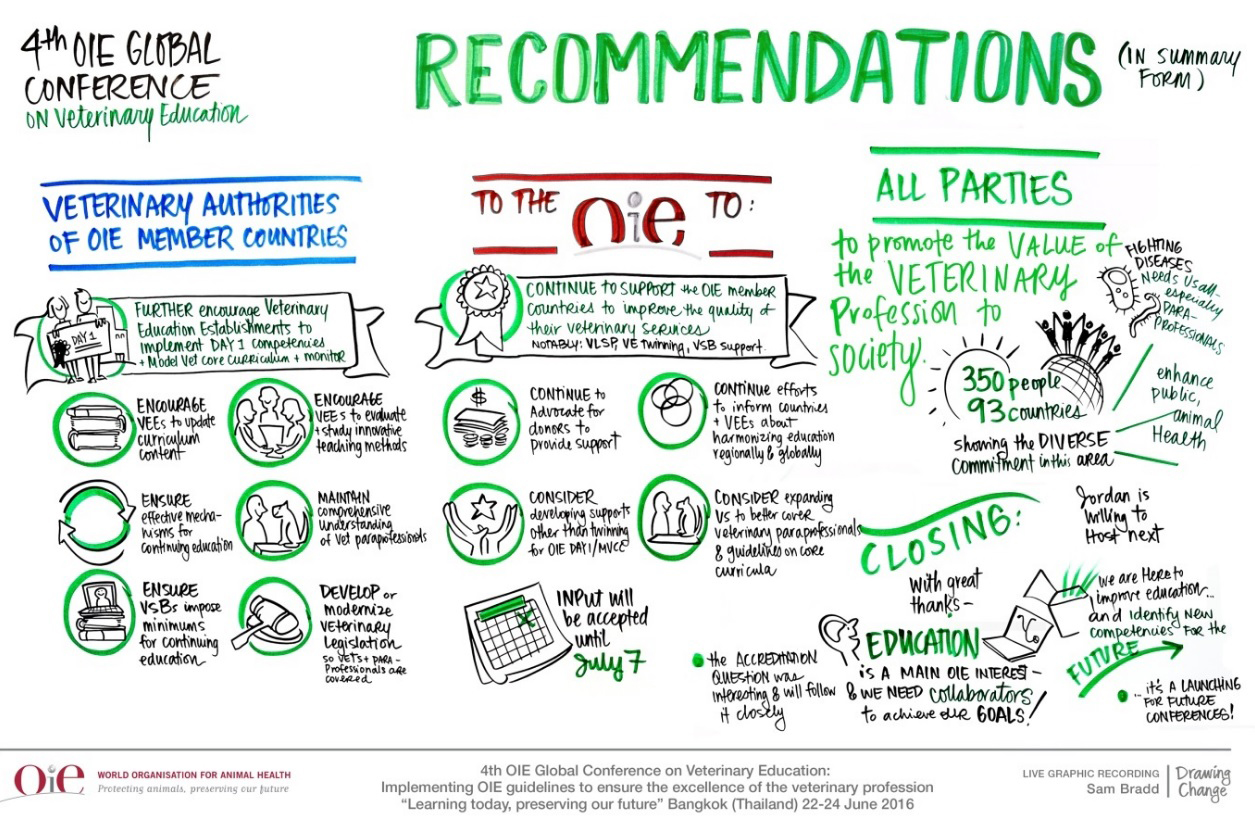 4th OIE GLOBAL
CONFERENCE
ON Veterinary Education
RECOMMENDATIONS
(IN SUMMARY
FORM)
VETERINARY AUTHORITIES
OF OIE MEMBER COUNTRIES
DAY 1
FURTHER encourage Veterinary
Education Establishments to
implement DAY 1 competencies
+ Model Vet core curriculum + monitor
ENCOURAGE
VEEs to update
curriculum
content
ENCOURAGE
VEEs to evaluate
+ study innovative
teaching methods
ENSURE
effective mecha-
nisms for
continuing education
MAINTAIN
comprehensive
understanding
of vet paraprofessionals
ENSURE
VSBs impose
minimums
for continuing
education
DEVELOP or
modernize
veterinary
Legislation
so VETS + PARA-
Professionals are
covered
TO THE OIE TO:
CONTINUE TO SUPPORT the OIE member
Countries to improve the quality of
their veterinary services
NOTABLY: VLSP, VE twinning, VSB support.
$
CONTINUE to
Advocate for
donors to
provide support
CONTINUE efforts
to inform countries
+ VEEs about
harmonizing education
regionally & globally
CONSIDER
developing supports
other than twinning
for OIE DAY1/MVCC
CONSIDER expanding
VS to better cover
veterinary paraprofessionals
& guidelines on core
curricula
INPUT will
be accepted
until
July 7
ALL PARTIES
to promote the VALUE of
the VETERINARY
Profession to
society.
FIGHTING
DISEASES
Needs us all-
especially
PARA-
PROFESSIONALS
350 people
93 countries
showing the DIVERSE
commitment in this area
enhance
public,
animal
Health
CLOSING:
Jordan is
willing to
Host next
with great
thanks-
EDUCATION
IS A MAIN OIE INTEREST-
& WE NEED collaborators
to achieve our GOALS!
the ACCREDITATION
QUESTION was
interesting & will follow
it closely
we are Here to
improve education...
and identify NEW
competencies FOR the
FUTURE
... it's A LAUNCHING
FOR FUTURE
CONFERENCES!
Oie WORLD ORGANISATION FOR ANIMAL HEALTH
Protecting animals, preserving our future
4th OIE Global Conference on Veterinary Education:
Implementing OIE guidelines to ensure the excellence of the veterinary profession
“Learning today, preserving our future” Bangkok (Thailand) 22-24 June 2016
LIVE GRAPHIC RECORDING
Sam Bradd
Drawing
Change